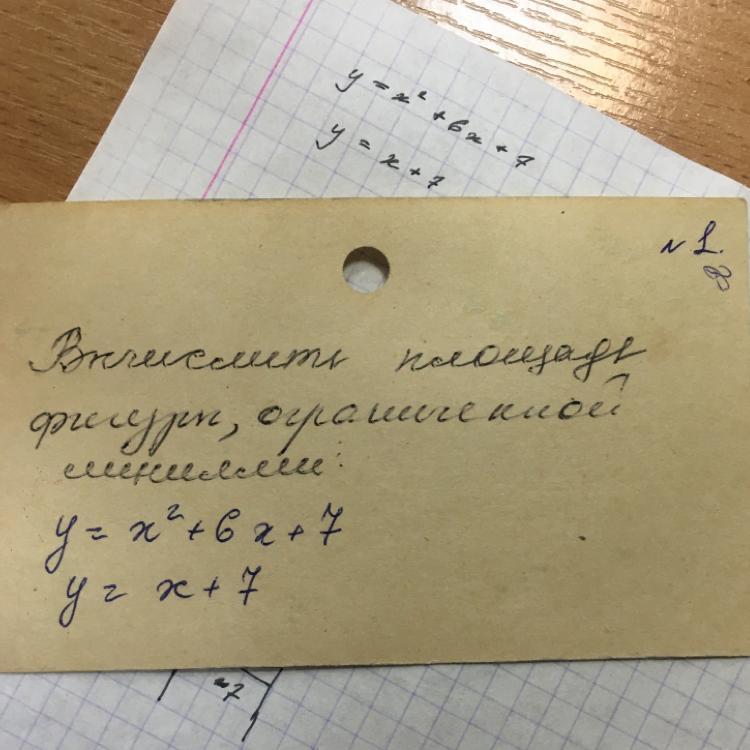 y = x² + 6x + 7
y = x + 7
N 1.
8
Вычислить площадь
фигуры, ограниченной
линиями:
y = x² + 6x + 7
y = x + 7